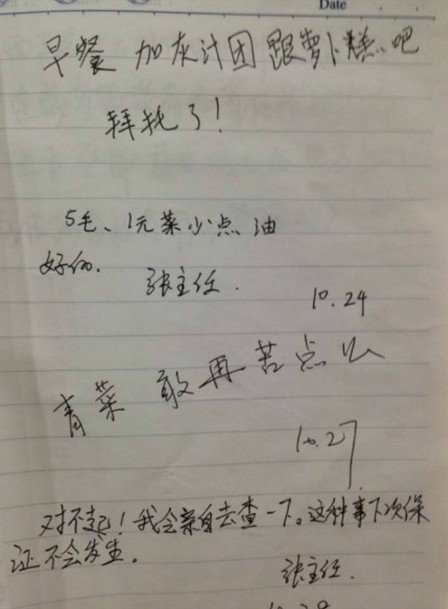 Date
早餐 加灰计团跟萝卜糕吧
拜托了!
5毛、1元菜少点油
好的.
张主任.
10.24
青菜 敢再苦点么
10.27
对不起!我会亲自去查一下。这种事下次保
证不会发生.
张主任.
10.29